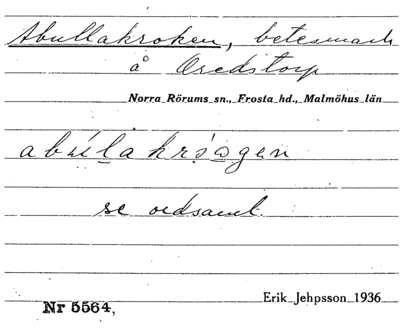 Abullakroken, betesmark
å Oredstorp
Norra Rörums sn., Frosta hd., Malmöhus län
se ordsaml.
Nr 5564,
Erik Jehpsson 1936